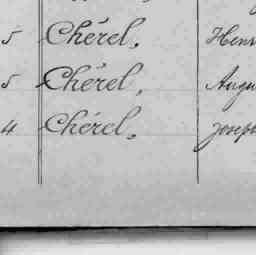 5 Chérel, Henr
5 Chérel, Augu
4 Chérel, Joseph